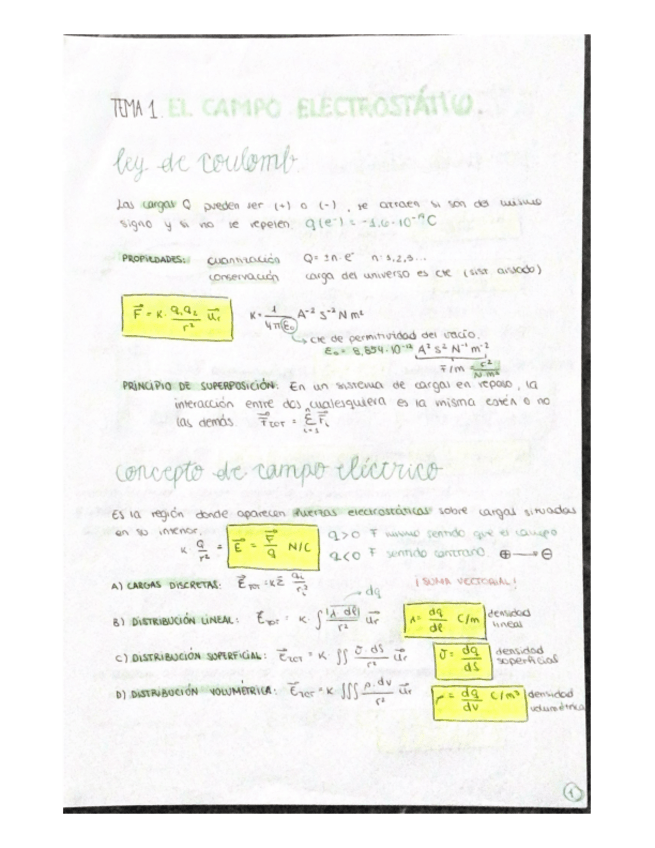 TEMA 1. EL CAMPO ELECTROSTÁTICO.
ley de coulomb.
Las cargas Q pueden ser (+) o (-), se atraen si son del mismo
signo y si no se repelen q(e⁻) = -1,6·10⁻¹⁹ C
PROPIEDADES: cuantización Q = ±n·e⁻ n: 1,2,3...
conservación carga del universo es cte (sist. aislado)
F⃗ = K· q₁q₂/r² u⃗r K = 1/4πε₀ A⁻² s⁻² N m²
cte de permitividad del vacío.
ε₀ = 8,854·10⁻¹² A² s² N⁻¹ m⁻²
F/m = C²/N·m²
PRINCIPIO DE SUPERPOSICIÓN: En un sistema de cargas en reposo, la
interacción entre dos cualesquiera es la misma estén o no
las demás. F⃗TOT = Σ F⃗i
concepto de campo eléctrico
Es la región donde aparecen fuerzas electrostáticas sobre cargas situadas
en su interior.
K Q/r² = E⃗ = F⃗/q N/C q>0 F mismo sentido que el campo
q<0 F sentido contrario. ⊕→⊖
A) CARGAS DISCRETAS: E⃗TOT = K Σ qi/ri² ¡SUMA VECTORIAL!
dq
B) DISTRIBUCIÓN LINEAL: E⃗TOT = K· ∫ λ dl/r² u⃗r λ = dq/dl C/m densidad lineal
C) DISTRIBUCIÓN SUPERFICIAL: E⃗TOT = K· ∬ σ·ds/r² u⃗r σ = dq/ds densidad superficial
D) DISTRIBUCIÓN VOLUMÉTRICA: E⃗TOT = K ∭ ρ·dv/r² u⃗r ρ = dq/dv C/m³ densidad volumétrica
1